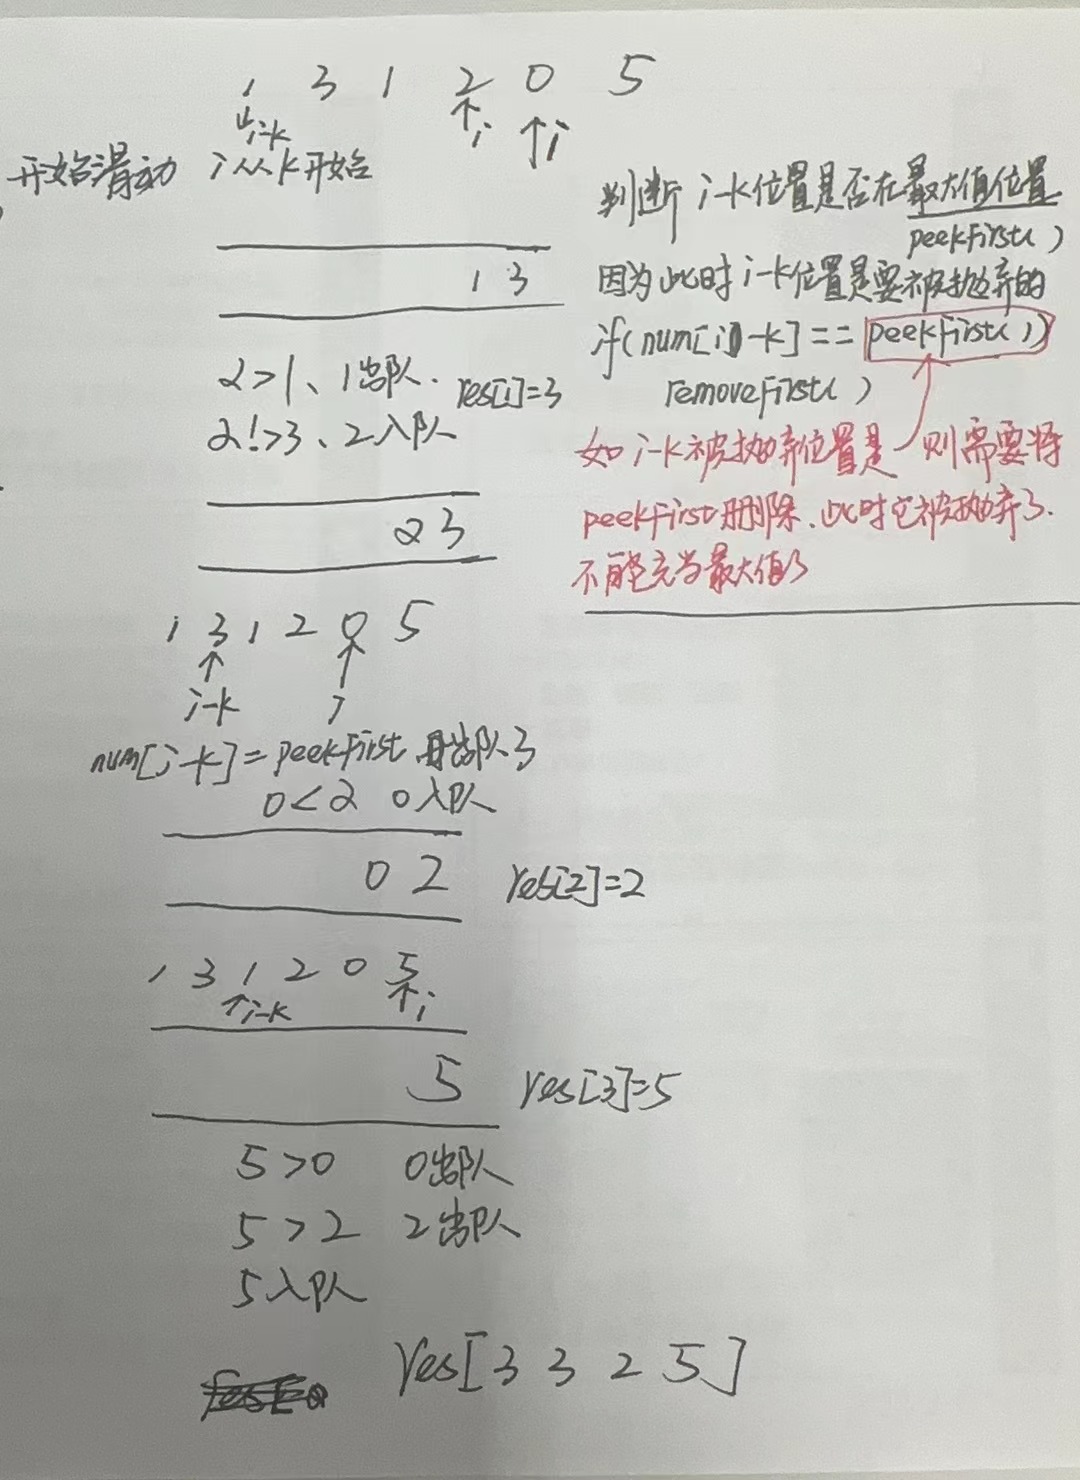 1 3 1 2 0 5
i-k
i
i
开始滑动 i从k开始
1 3
2>1、1出队. res[1]=3
2!>3、2入队
2 3
判断 i-k位置是否在最大值位置
peekFirst()
因为此时i-k位置是要被抛弃的
if(num[i]-k]==peekFirst())
removeFirst()
如i-k被抛弃位置是 则需要将
peekFirst删除、此时它被抛弃了.
不能充当最大值了
1 3 1 2 0 5
i-k i
num[i-k]=peekFirst 出队3
0<2 0入队
0 2 res[2]=2
1 3 1 2 0 5
i-k i
5 res[3]=5
5>0 0出队
5>2 2出队
5入队
res[3 3 2 5]